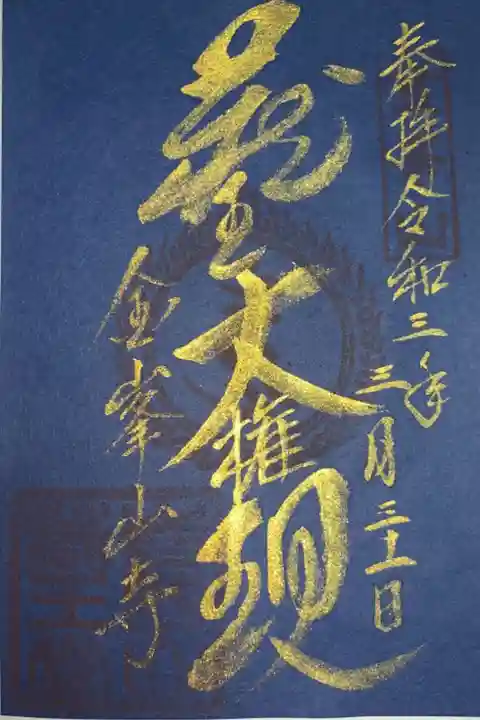 奉拝 令和三年三月三十一日
蔵王大権現
金峯山寺